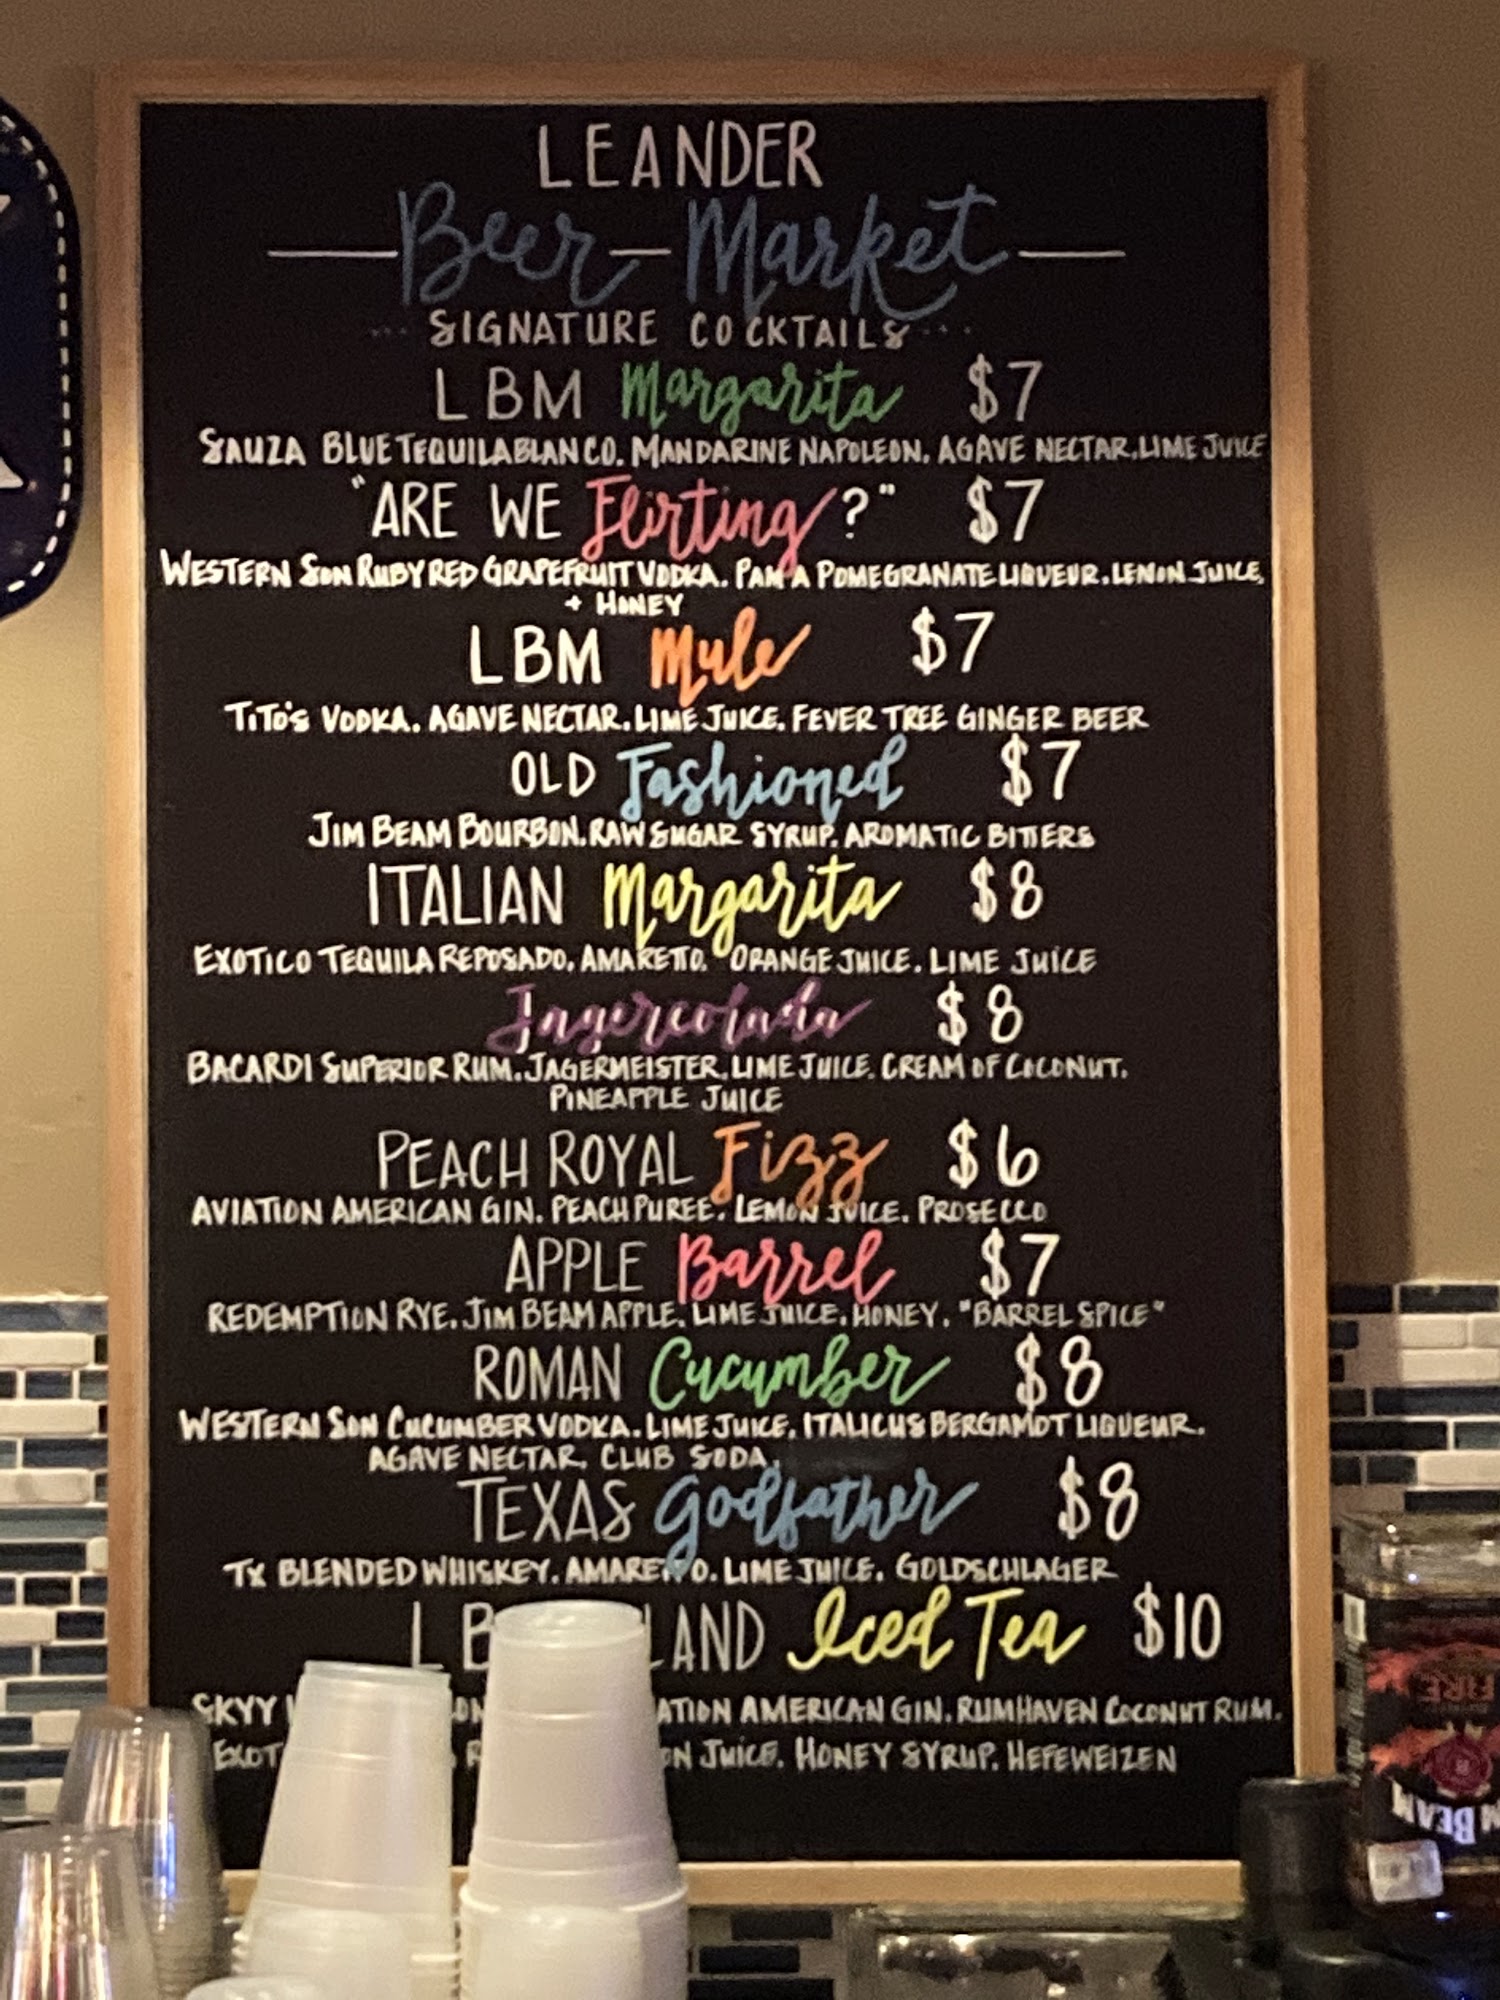 LEANDER
Beer Market
SIGNATURE COCKTAILS
LBM Margarita $7
SAUZA BLUE TEQUILA BLANCO. MANDARINE NAPOLEON. AGAVE NECTAR. LIME JUICE
"ARE WE Flirting?" $7
WESTERN SON RUBY RED GRAPEFRUIT VODKA. PAMA POMEGRANATE LIQUEUR. LEMON JUICE,
+ HONEY
LBM Mule $7
TITO'S VODKA. AGAVE NECTAR. LIME JUICE. FEVER TREE GINGER BEER
OLD Fashioned $7
JIM BEAM BOURBON. RAW SUGAR SYRUP. AROMATIC BITTERS
ITALIAN Margarita $8
EXOTICO TEQUILA REPOSADO. AMARETTO. ORANGE JUICE. LIME JUICE
Jagercolada $8
BACARDI SUPERIOR RUM. JAGERMEISTER. LIME JUICE. CREAM OF COCONUT.
PINEAPPLE JUICE
PEACH ROYAL Fizz $6
AVIATION AMERICAN GIN. PEACH PUREE. LEMON JUICE. PROSECCO
APPLE Barrel $7
REDEMPTION RYE. JIM BEAM APPLE. LIME JUICE. HONEY. "BARREL SPICE"
ROMAN Cucumber $8
WESTERN SON CUCUMBER VODKA. LIME JUICE. ITALICUS BERGAMOT LIQUEUR.
AGAVE NECTAR. CLUB SODA.
TEXAS Godfather $8
TX BLENDED WHISKEY. AMARETTO. LIME JUICE. GOLDSCHLAGER
LB LAND Iced Tea $10
SKYY ATION AMERICAN GIN. RUMHAVEN COCONUT RUM.
EXOT JUICE. HONEY SYRUP. HEFEWEIZEN
FIRE
M BEAM